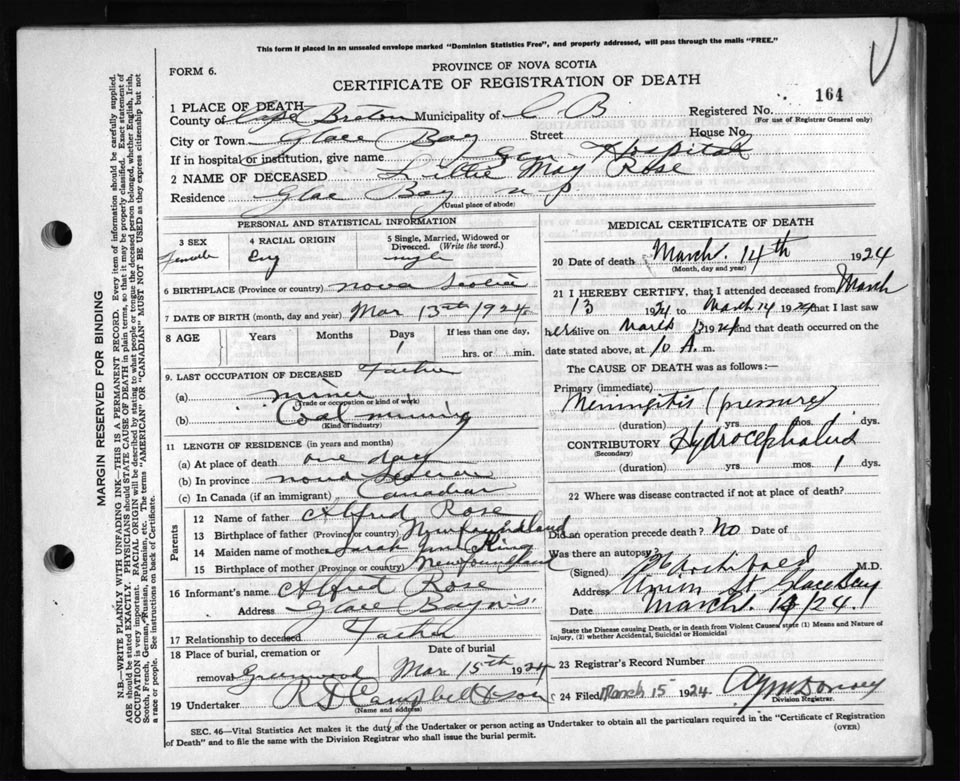 This form if placed in an unsealed envelope marked "Dominion Statistics Free", and properly addressed, will pass through the mails "FREE."
PROVINCE OF NOVA SCOTIA
FORM 6.
CERTIFICATE OF REGISTRATION OF DEATH
164
1 PLACE OF DEATH
County of Cape Breton Municipality of C B Registered No.
(For use of Registrar General only)
City or Town Glace Bay Street House No.
If in hospital or institution, give name Gen Hospital
2 NAME OF DECEASED Lillie May Rose
Residence Glace Bay N S
(Usual place of abode)
PERSONAL AND STATISTICAL INFORMATION
3 SEX 4 RACIAL ORIGIN 5 Single, Married, Widowed or Divorced. (Write the word.)
Female Eng single
6 BIRTHPLACE (Province or country) Nova Scotia
7 DATE OF BIRTH (month, day and year) Mar 13th 1924
8 AGE Years Months Days If less than one day,
1
hrs. or min.
9. LAST OCCUPATION OF DECEASED Father
(a) miner
(Trade or occupation or kind of work)
(b) Coal mining
(Kind of industry)
11 LENGTH OF RESIDENCE (in years and months)
(a) At place of death one day
(b) In province nova scotia
(c) In Canada (if an immigrant) Canadian
Parents
12 Name of father Alfred Rose
13 Birthplace of father (Province or country) Newfoundland
14 Maiden name of mother Sarah Ann King
15 Birthplace of mother (Province or country) Newfoundland
16 Informant's name Alfred Rose
Address Glace Bay NS
17 Relationship to deceased Father
18 Place of burial, cremation or removal Date of burial
Greenwood Mar 15th 1924
19 Undertaker R D Campbell & son
(Name and address)
MEDICAL CERTIFICATE OF DEATH
20 Date of death March 14th 1924
(Month, day and year)
21 I HEREBY CERTIFY, that I attended deceased from March
13 1924 to March 14 1924 that I last saw
her alive on March 13 1924 and that death occurred on the
date stated above, at 10 A. m.
The CAUSE OF DEATH was as follows:—
Primary (immediate)
Meningitis (pressure)
(duration) yrs. mos. dys.
CONTRIBUTORY Hydrocephalus
(Secondary)
(duration) yrs mos. 1 dys.
22 Where was disease contracted if not at place of death?
Did an operation precede death? No Date of
Was there an autopsy?
(Signed) Archibald M.D.
Address Union St Glace Bay
Date March. 14/24
State the Disease causing Death, or in death from Violent Causes, state (1) Means and Nature of Injury, (2) whether Accidental, Suicidal or Homicidal
23 Registrar's Record Number
24 Filed March 15 1924
Division Registrar.
SEC. 46—Vital Statistics Act makes it the duty of the Undertaker or person acting as Undertaker to obtain all the particulars required in the "Certificate of Registration
of Death" and to file the same with the Division Registrar who shall issue the burial permit.
(OVER)
MARGIN RESERVED FOR BINDING
N.B.—WRITE PLAINLY WITH UNFADING INK—THIS IS A PERMANENT RECORD. Every item of information should be carefully supplied.
AGE should be stated EXACTLY. PHYSICIANS should STATE CAUSE OF DEATH in plain terms, so that it may be properly classified. Exact statement of
OCCUPATION is very important. RACIAL ORIGIN will be described by stating to what people or tongue the deceased person belonged, whether English, Irish,
Scotch, French, German, Russian, Ruthenian, etc. The terms "AMERICAN" or "CANADIAN" MUST NOT BE USED as they express citizenship but not
a race or people. See instructions on back of Certificate.